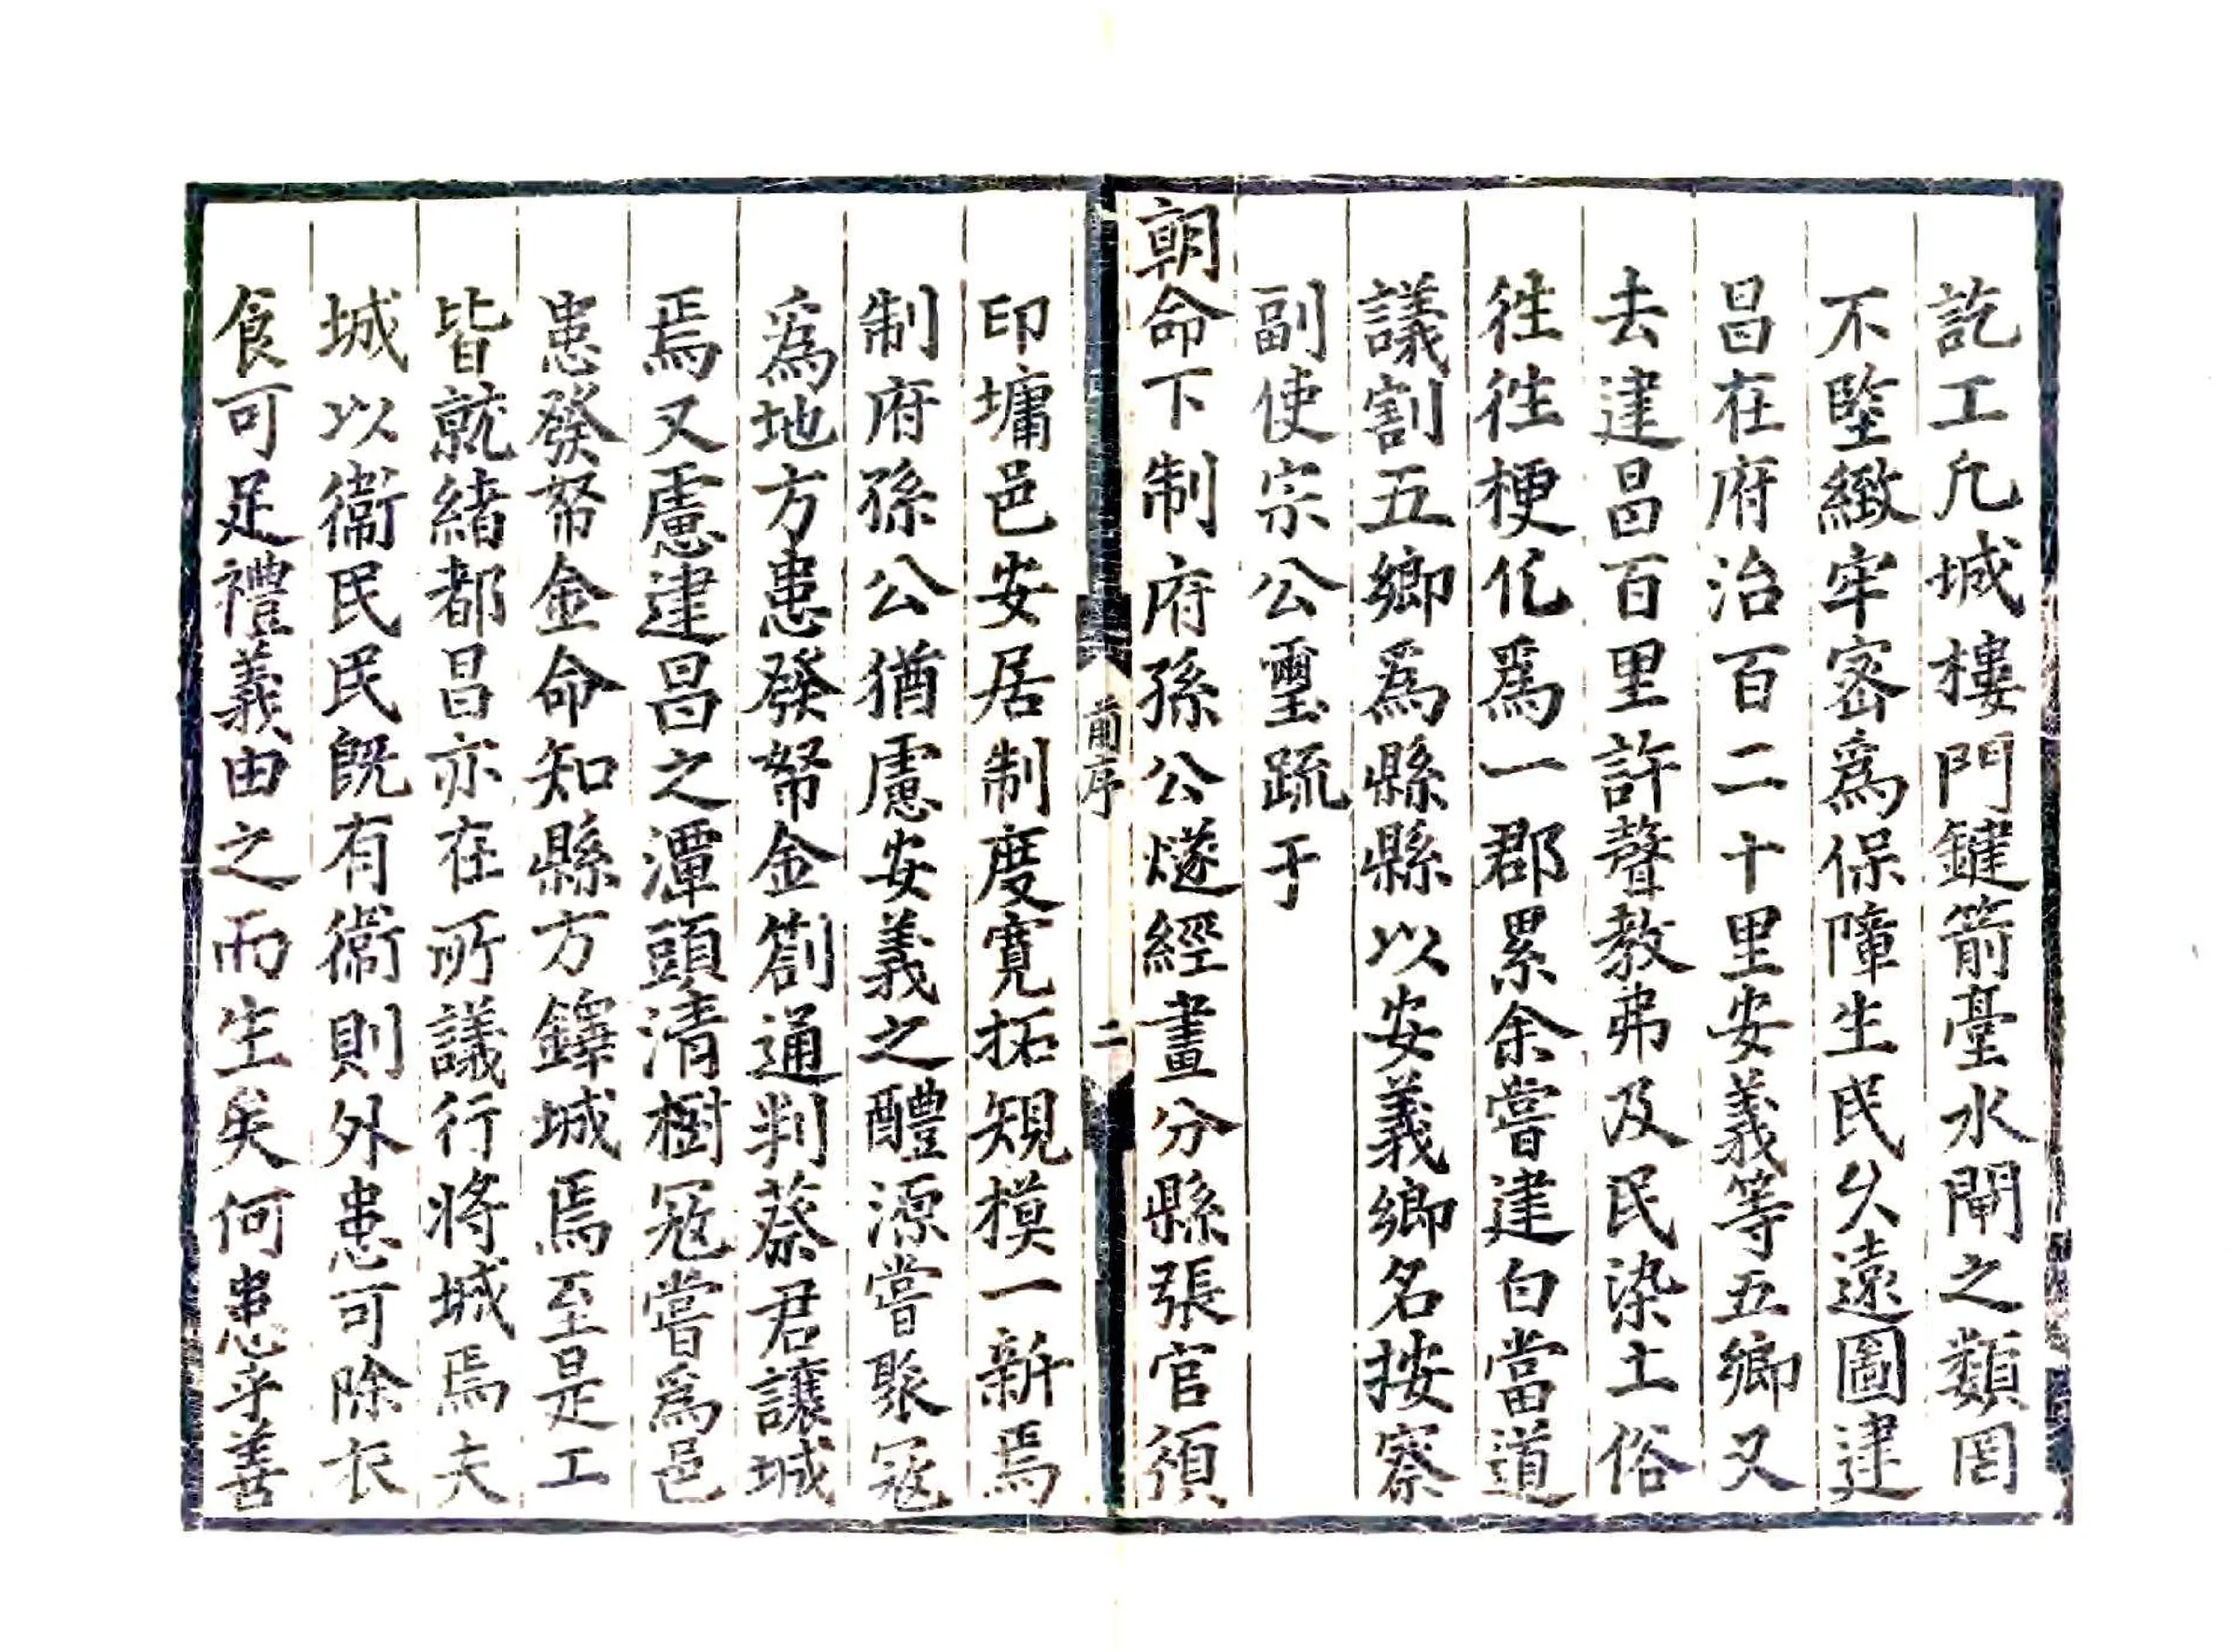 訖工凢城樓門鍵箭臺水閘之類罔
不堅緻牢宻爲保障生民乆遠圖建
昌在府治百二十里安義等五鄉又
去建昌百里許聲教弗及民染土俗
徃徃梗化爲一郡累余嘗建白當道
議割五鄉爲縣縣以安義鄉名按察
副使宗公璽疏于
朝命下制府孫公燧經畫分縣張官頒
前序 二
印墉邑安居制度寛拓規模一新焉
制府孫公猶慮安義之醴源嘗聚冦
爲地方患發帑金劄通判蔡君讓城
焉又慮建昌之潭頭清樹冦嘗爲邑
患發帑金命知縣方鐸城焉至是工
皆就緒都昌亦在所議行将城焉夫
城以衞民民旣有衞則外患可除衣
食可足禮義由之而生矣何患乎善